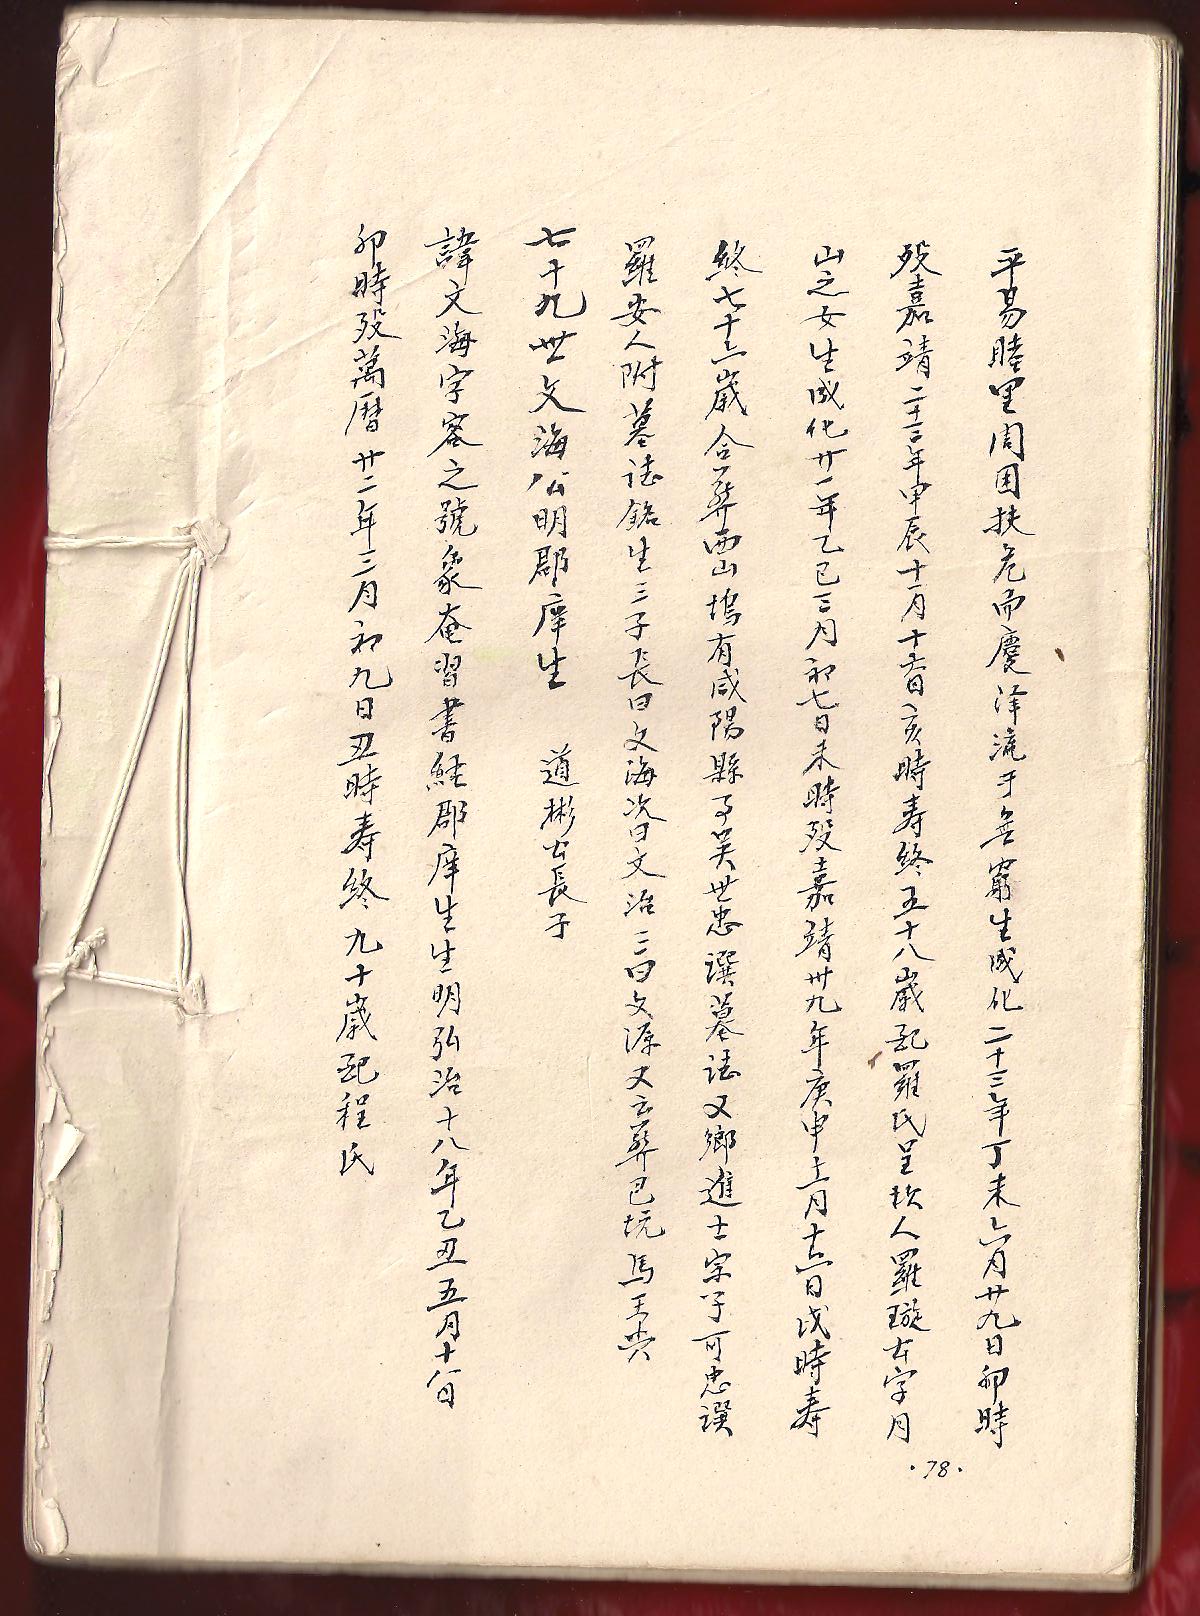 平易睦里周困扶危而慶泽流于無窮生成化二十三年丁未六月廿九日卯時
殁嘉靖二十三年甲辰十一月十六日亥時寿終五十八歲配羅氏呈坎人羅璇公字月
山之女生成化廿一年乙巳三月初七日未時殁嘉靖卅九年庚申十二月十六日戌時寿
終七十六歲合葬西山塢有咸陽縣事吴世忠譔墓誌又鄉進士宗子可忠譔
羅安人附墓誌銘生三子長曰文海次曰文治三曰文源又云葬巴坑馬王共
七十九世文海公明郡庠生 道彬公長子
諱文海字容之號象庵習書経郡庠生生明弘治十八年乙丑五月十八日
卯時殁萬曆廿二年三月初九日丑時寿終九十歲配程氏
·78·